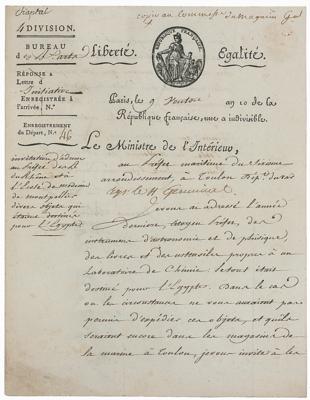 Chaptal
copie au Commissre du Magasin Gal
4 DIVISION.
BUREAU
des Arts
Liberté.
Egalité.
RÉPONSE A
Lettre d
Initiative
ENREGISTRÉE A
l'arrivée, N.º
ENREGISTREMENT
du Départ, N.º 46
Paris, le 9 Ventose an 10 de la
République française, une & indivisible.
Le Ministre de l'Intérieur,
invitation d'adresser
au Préfet des Bches
du Rhône et à
l'École de médecine
de montpellier
divers objets qui
étaient destinés
pour l'Egypte
au Préfet maritime du Sixieme
arrondissement, à Toulon Dépt. du var
Je vous ai adressé l'année
dernière, citoyen Préfet, des
instrumens d'astronomie et de phisique,
des livres et des ustensiles propres à un
Laboratoire de Chimie. le tout était
destiné pour l'Egypte. Dans le cas
où les circonstances ne vous auraient pas
permis d'expédier ces objets, et qu'ils
seraient encore dans les magasins de
la marine à Toulon, je vous invite à les